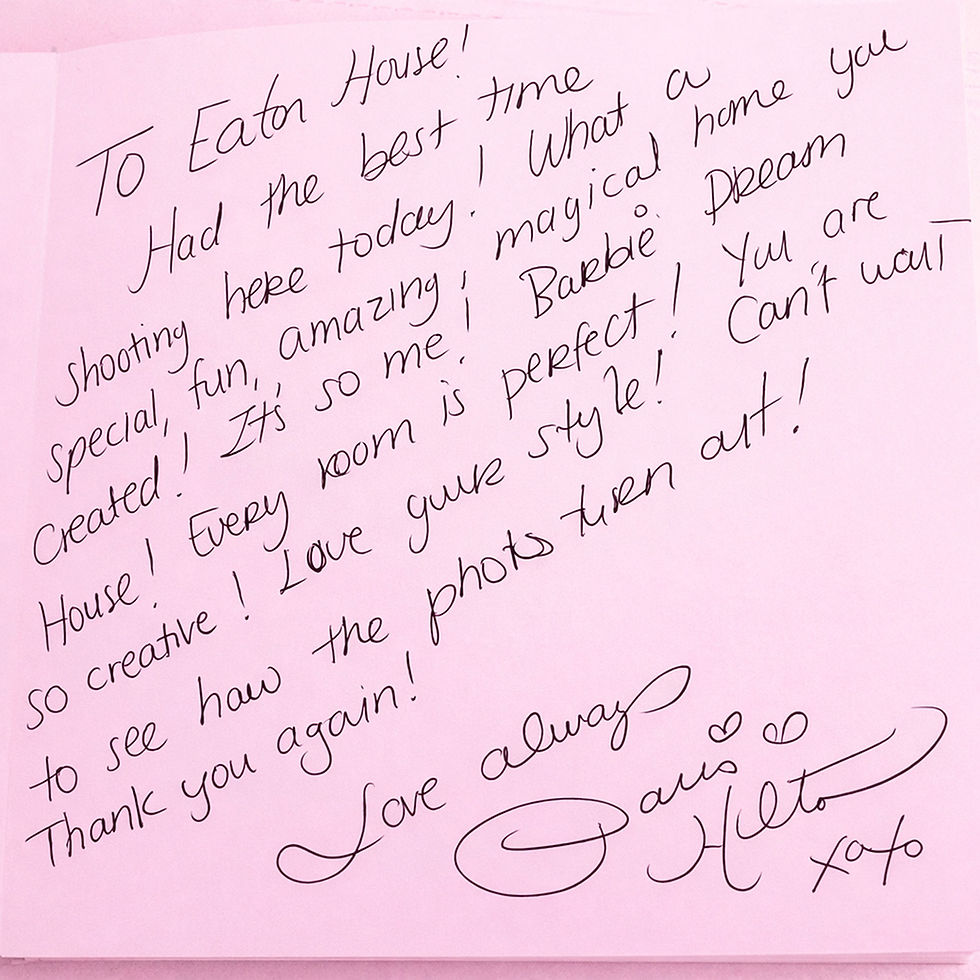 To Eaton House!
Had the best time
shooting here today! What a
special, fun, amazing, magical home you
created! It's so me! Barbie Dream
House! Every room is perfect! You are
so creative! Love your style! Can't wait
to see how the photos turn out!
Thank you again!
Love always
Paris
Hilton
xoxo